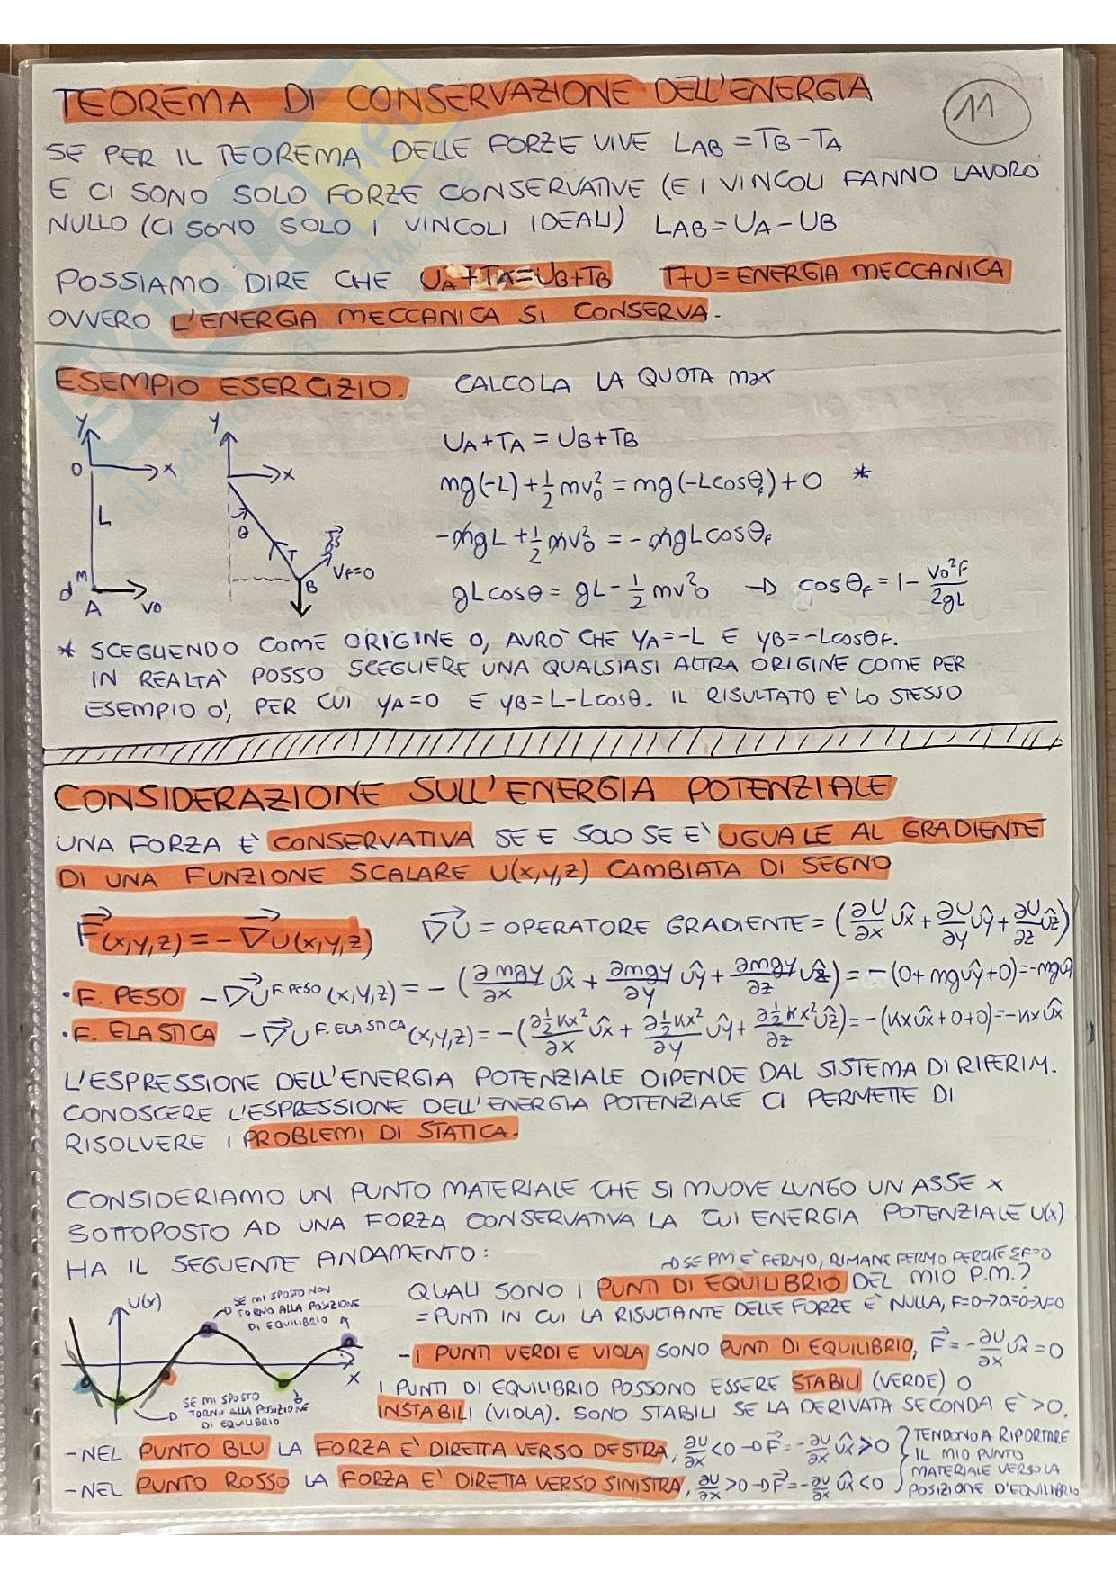 TEOREMA DI CONSERVAZIONE DELL'ENERGIA
11
SE PER IL TEOREMA DELLE FORZE VIVE LAB = TB - TA
E CI SONO SOLO FORZE CONSERVATIVE (E I VINCOLI FANNO LAVORO
NULLO (CI SONO SOLO I VINCOLI IDEALI) LAB = UA - UB
POSSIAMO DIRE CHE UA+TA=UB+TB T+U = ENERGIA MECCANICA
OVVERO L'ENERGIA MECCANICA SI CONSERVA.
ESEMPIO ESERCIZIO. CALCOLA LA QUOTA max
y
O
x
L
M
d
A
v0
y
x
θ
T
B
VF=0
UA+TA = UB+TB
mg(-L)+½mv0² = mg(-Lcosθf)+0 *
-mgL+½mv0² = -mgLcosθf
gLcosθ = gL-½mv²0 → cosθf = 1- v0²f/2gL
* SCEGLIENDO COME ORIGINE O, AVRÒ CHE yA=-L E yB=-Lcosθf.
IN REALTÀ POSSO SCEGLIERE UNA QUALSIASI ALTRA ORIGINE COME PER
ESEMPIO O', PER CUI yA=0 E yB=L-Lcosθ. IL RISULTATO È LO STESSO
CONSIDERAZIONE SULL'ENERGIA POTENZIALE
UNA FORZA È CONSERVATIVA SE E SOLO SE È UGUALE AL GRADIENTE
DI UNA FUNZIONE SCALARE U(x,y,z) CAMBIATA DI SEGNO
F(x,y,z) = -∇U(x,y,z) ∇U = OPERATORE GRADIENTE = (∂U/∂x ûx + ∂U/∂y ûy + ∂U/∂z ûz)
• F. PESO -∇U F.PESO (x,y,z) = -(∂mgy/∂x ûx + ∂mgy/∂y ûy + ∂mgy/∂z ûz) = -(0+mgûy+0)=-mgû
• F. ELASTICA -∇U F.ELASTICA (x,y,z) = -(∂½Kx²/∂x ûx + ∂½Kx²/∂y ûy + ∂½Kx²/∂z ûz) = -(Kxûx+0+0)=-Kxûx
L'ESPRESSIONE DELL'ENERGIA POTENZIALE DIPENDE DAL SISTEMA DI RIFERIM.
CONOSCERE L'ESPRESSIONE DELL'ENERGIA POTENZIALE CI PERMETTE DI
RISOLVERE I PROBLEMI DI STATICA.
CONSIDERIAMO UN PUNTO MATERIALE CHE SI MUOVE LUNGO UN ASSE x
SOTTOPOSTO AD UNA FORZA CONSERVATIVA LA CUI ENERGIA POTENZIALE U(x)
HA IL SEGUENTE ANDAMENTO:
→ SE PM È FERMO, RIMANE FERMO PERCHÉ ΣF=0
QUALI SONO I PUNTI DI EQUILIBRIO DEL MIO P.M.?
= PUNTI IN CUI LA RISULTANTE DELLE FORZE È NULLA, F=0→a=0→v=0
U(x)
SE MI SPOSTO NON
TORNO ALLA POSIZIONE
DI EQUILIBRIO
x
SE MI SPOSTO
TORNO ALLA POSIZIONE
DI EQUILIBRIO
- I PUNTI VERDI E VIOLA SONO PUNTI DI EQUILIBRIO, F = -∂U/∂x ûx = 0
I PUNTI DI EQUILIBRIO POSSONO ESSERE STABILI (VERDE) O
INSTABILI (VIOLA). SONO STABILI SE LA DERIVATA SECONDA È >0.
- NEL PUNTO BLU LA FORZA È DIRETTA VERSO DESTRA, ∂U/∂x <0 → F=-∂U/∂x ûx >0
- NEL PUNTO ROSSO LA FORZA È DIRETTA VERSO SINISTRA, ∂U/∂x >0 → F=-∂U/∂x ûx <0
TENDONO A RIPORTARE
IL MIO PUNTO
MATERIALE VERSO LA
POSIZIONE D'EQUILIBRIO